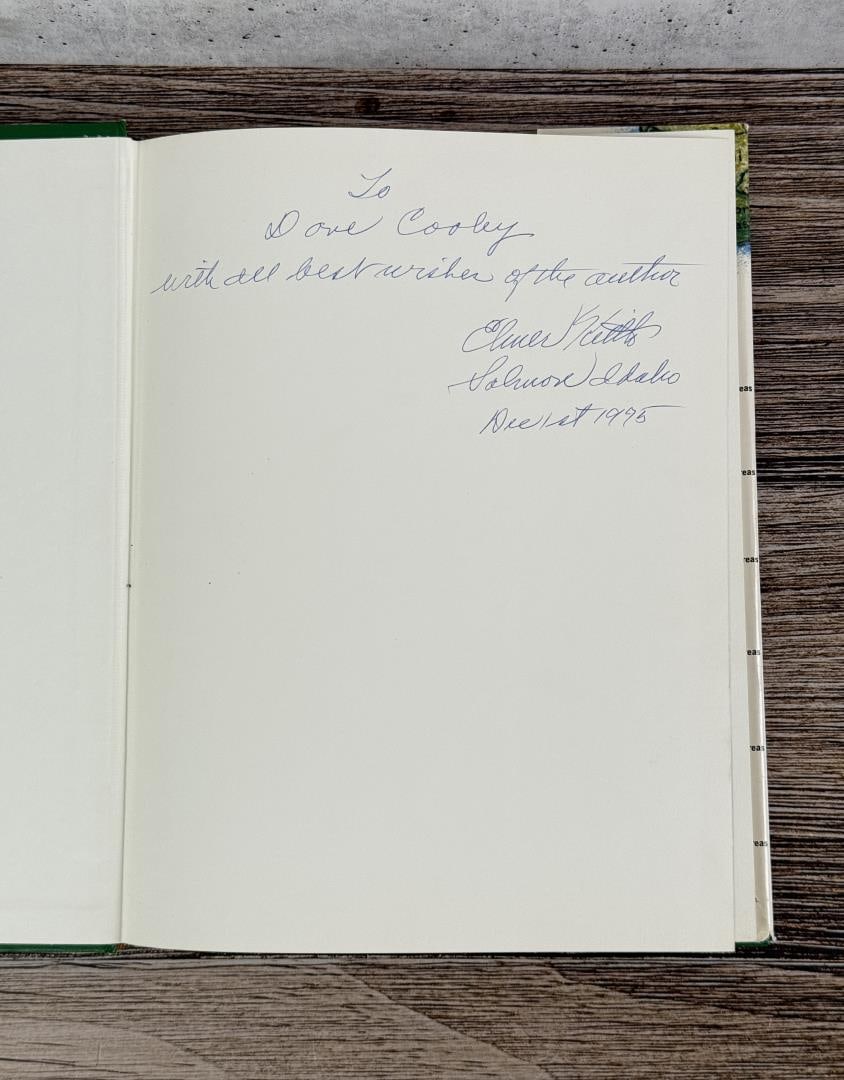 To
Dave Cooley
with all best wishes of the author
Elmer Keith
Salmon Idaho
Dec 1st 1975
eas
eas
reas
eas
reas
eas